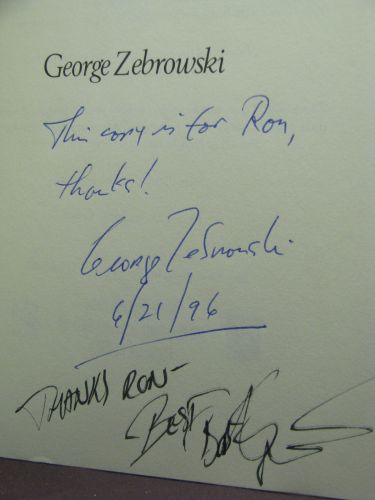 George Zebrowski
This copy is for Ron,
thanks!
George Zebrowski
6/21/96
THANKS RON-
BEST